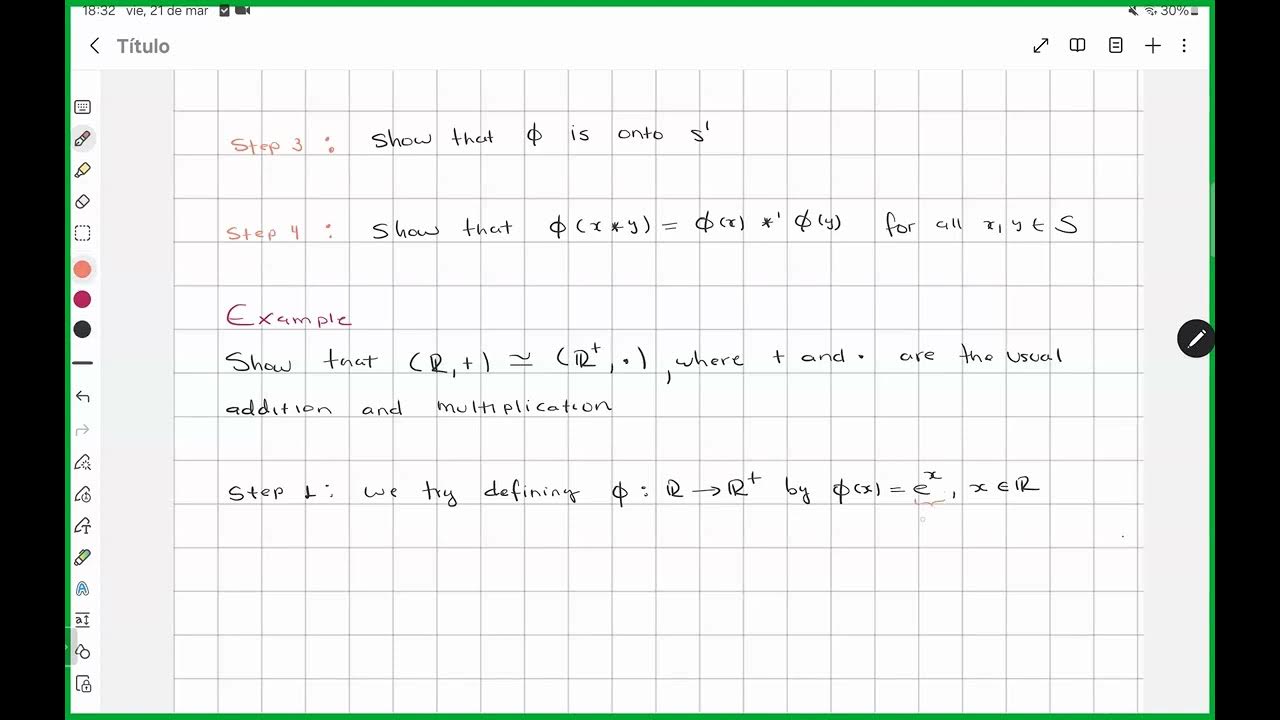 18:32 vie, 21 de mar
30%
Título
Step 3 : Show that ϕ is onto S'
Step 4 : Show that ϕ(x * y) = ϕ(x) *' ϕ(y) for all x, y ∈ S
Example
Show that (ℝ, +) ≃ (ℝ⁺, ·), where + and · are the usual
addition and multiplication
Step 1: we try defining ϕ : ℝ → ℝ⁺ by ϕ(x) = eˣ, x ∈ ℝ